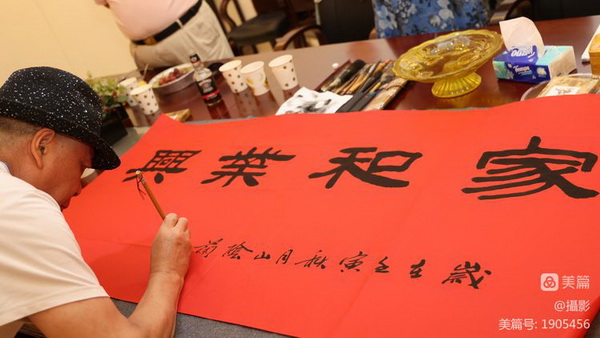 家和業興
歲在壬寅秋月山陰
美篇
@攝影
美篇号: 1905456